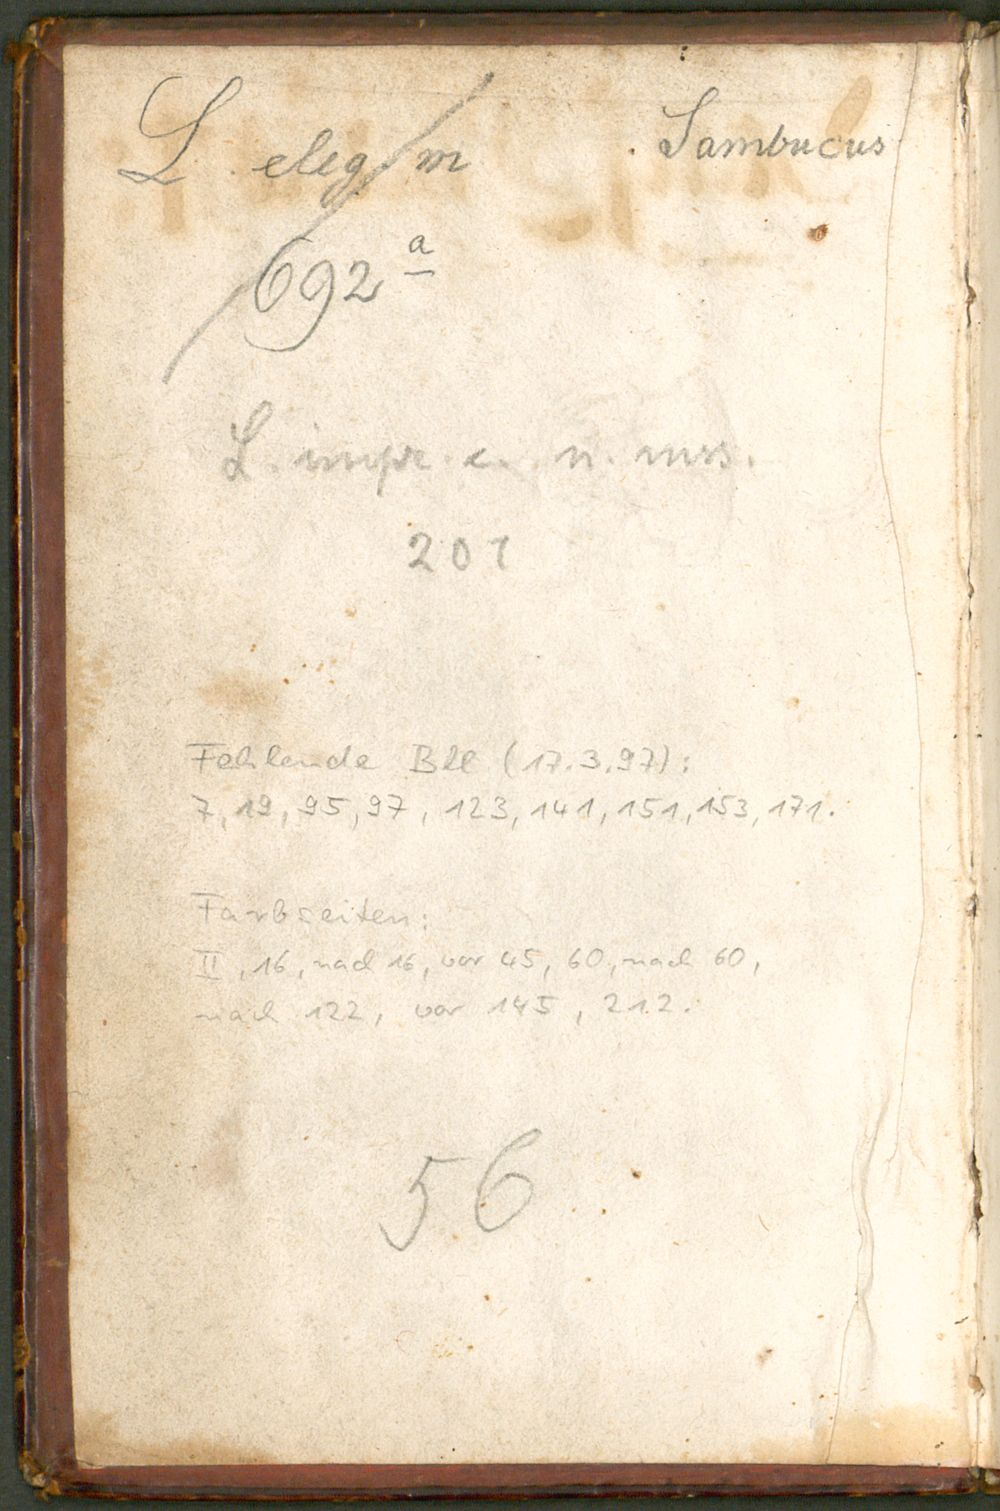 L. eleg. m
Sambucus
692 a
L. impr. c. n. mss.
207
Fehlende Bll (17.3.97):
7, 19, 95, 97, 123, 141, 151, 153, 171.
Farbseiten:
II, 16, nach 16, vor 45, 60, nach 60,
nach 122, vor 145, 212.
56